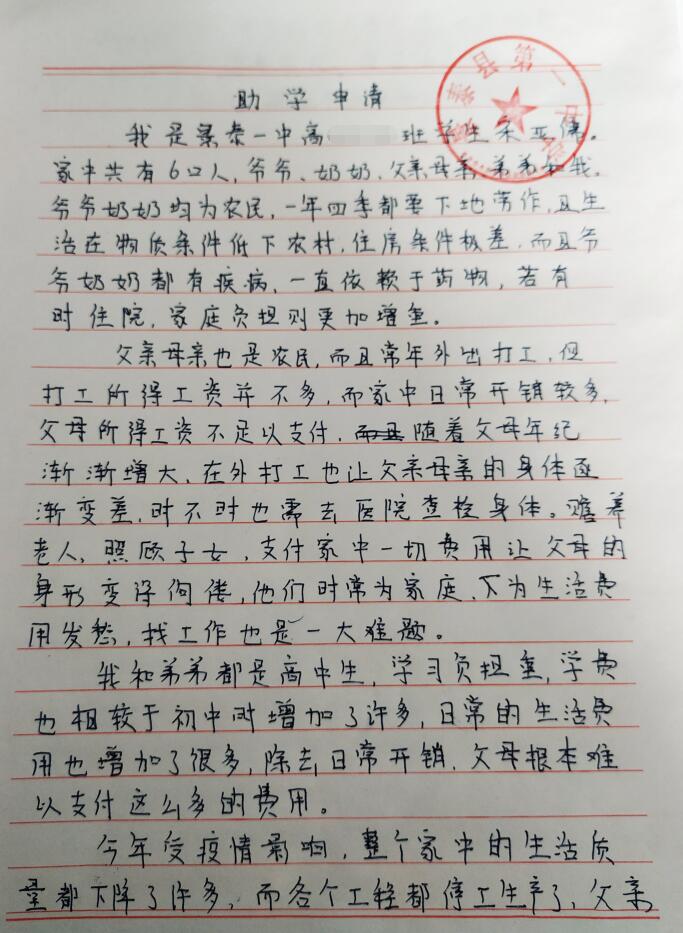 助学申请
我是景泰一中高 班学生 亚倩。
家中共有6口人,爷爷、奶奶、父亲母亲弟弟和我。
爷爷奶奶均为农民,一年四季都要下地劳作,且生
活在物质条件低下农村,住房条件极差,而且爷
爷奶奶都有疾病,一直依赖于药物,若有
时住院,家庭负担则更加增重。
父亲母亲也是农民,而且常年外出打工,但
打工所得工资并不多,而家中日常开销较多,
父母所得工资不足以支付,而且随着父母年纪
渐渐增大,在外打工也让父亲母亲的身体逐
渐变差,时不时也需去医院查检身体。赡养
老人,照顾子女,支付家中一切费用让父母的
身形变得佝偻,他们时常为家庭、下为生活费
用发愁,找工作也是一大难题。
我和弟弟都是高中生,学习负担重,学费
也相较于初中时增加了许多,日常的生活费
用也增加了很多,除去日常开销,父母根本难
以支付这么多的费用。
今年受疫情影响,整个家中的生活质
量都下降了许多,而各个工程都停工生产了,父亲
景泰县第一中学